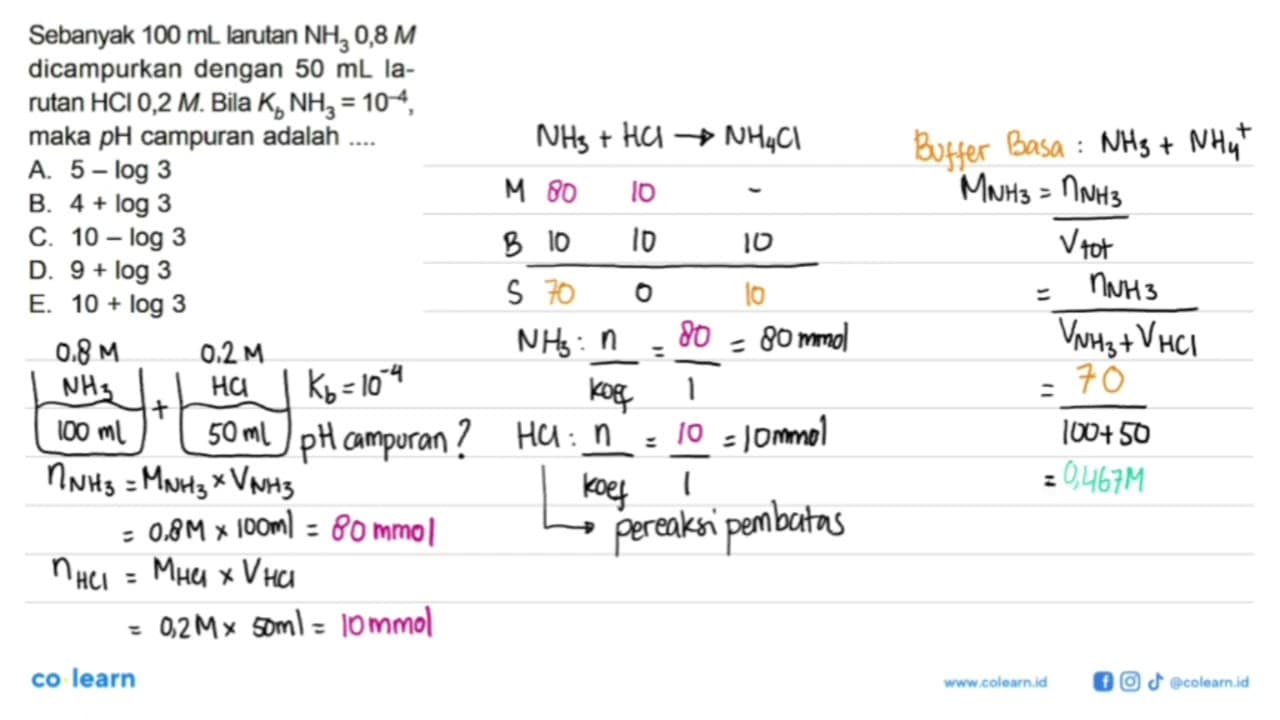 Sebanyak 100 mL larutan NH₃ 0,8 M
dicampurkan dengan 50 mL la-
rutan HCl 0,2 M. Bila K_b NH₃ = 10⁻⁴,
maka pH campuran adalah ....
A. 5 – log 3
B. 4 + log 3
C. 10 – log 3
D. 9 + log 3
E. 10 + log 3
0.8 M 0.2 M
NH₃ + HCl K_b = 10⁻⁴
100 ml 50 ml pH campuran?
n_NH₃ = M_NH₃ × V_NH₃
= 0.8M × 100ml = 80 mmol
n_HCl = M_HCl × V_HCl
= 0,2M × 50ml = 10 mmol
NH₃ + HCl → NH₄Cl
M 80 10 -
B 10 10 10
S 70 0 10
NH₃ : n/koef = 80/1 = 80 mmol
HCl : n/koef = 10/1 = 10 mmol
↳ pereaksi pembatas
Buffer Basa : NH₃ + NH₄⁺
M_NH₃ = n_NH₃
V_tot
= n_NH₃
V_NH₃ + V_HCl
= 70
100+50
= 0,467M
co learn
www.colearn.id @colearn.id